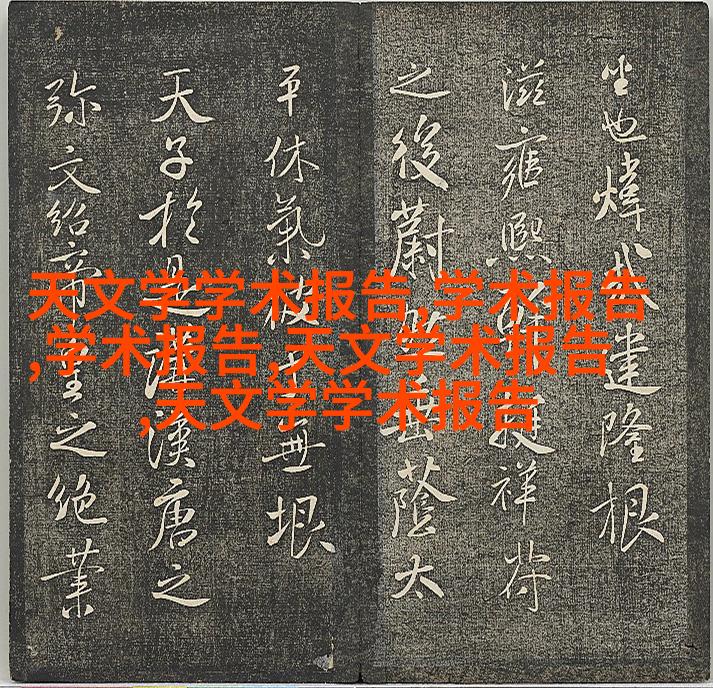 也煒建隆根
滋雍熙祥符
之後蔚垂蔭太
平休氣無垠
天子於是漢唐之
弥文紹帝之絶業
天文学学术报告,学术报告
,学术报告,天文学术报告
,天文学学术报告